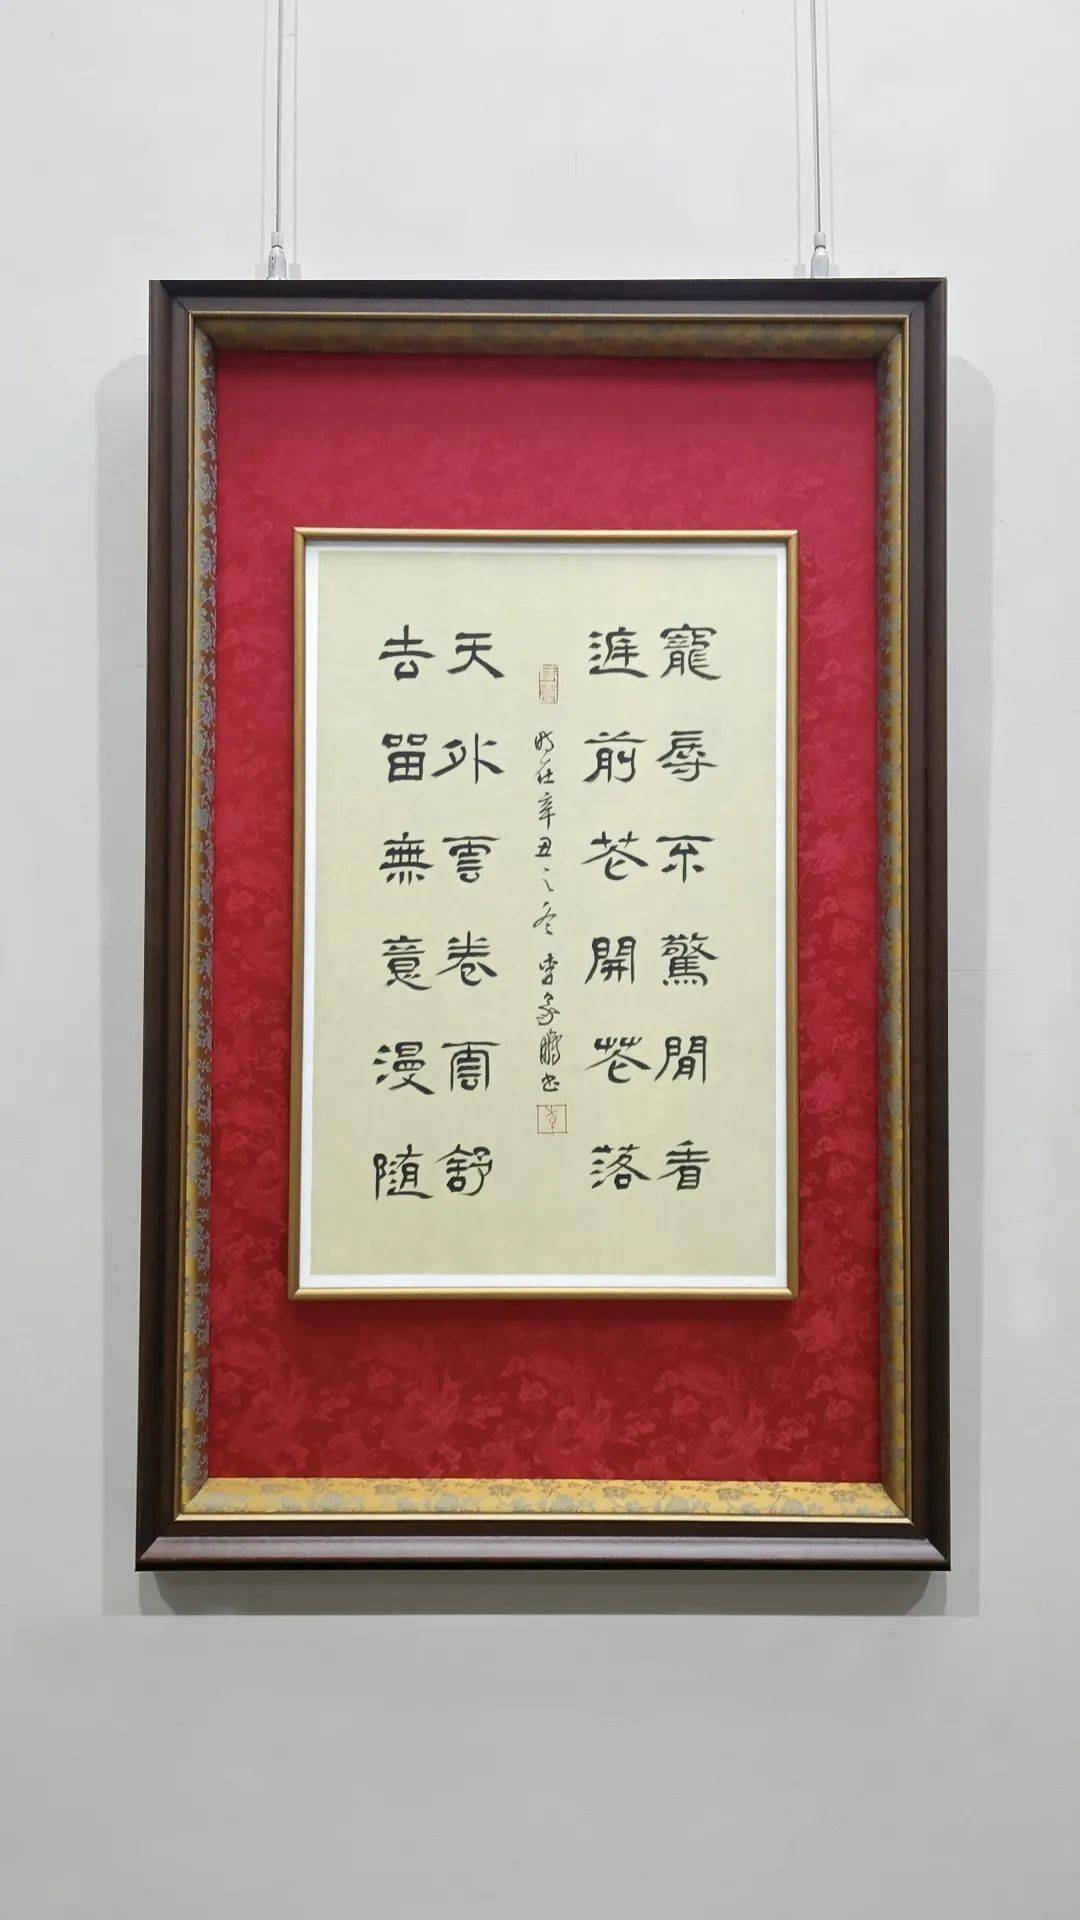 寵辱不驚閒看
庭前花開花落
去留無意漫隨
天外雲卷雲舒
時在辛丑之冬李象鵬書